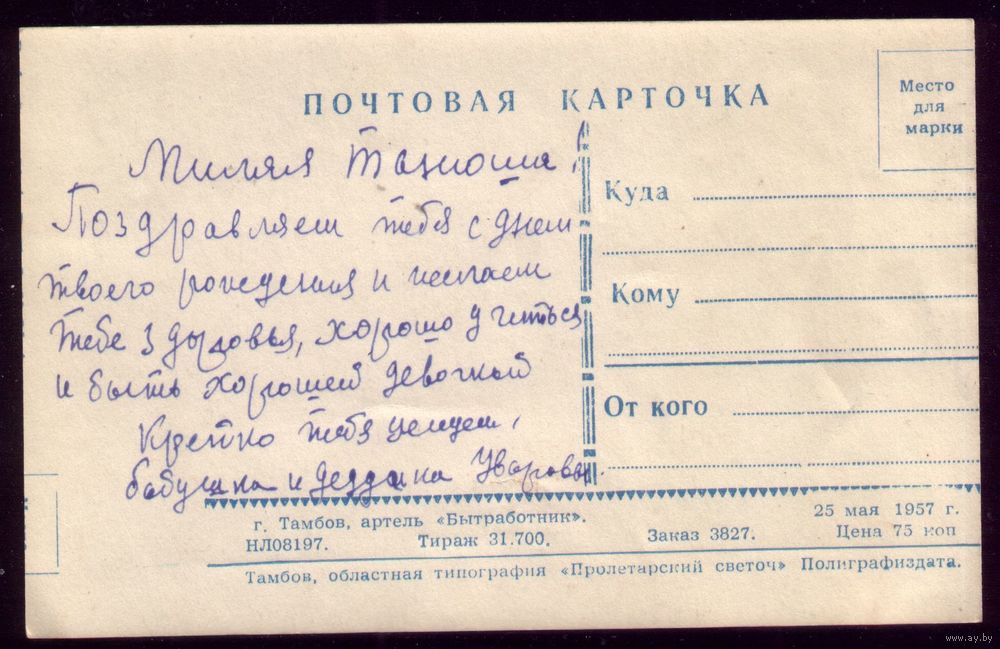 ПОЧТОВАЯ КАРТОЧКА
Место
для
марки
Милая Танюша,
Поздравляем тебя с днем
твоего рождения и желаем
тебе здоровья, хорошо учиться
и быть хорошей девочкой
Крепко тебя целуем,
бабушка и дедушка Уваровы.
Куда
Кому
От кого
г. Тамбов, артель «Бытработник».
25 мая 1957 г.
НЛ08197. Тираж 31.700. Заказ 3827. Цена 75 коп
Тамбов, областная типография «Пролетарский светоч» Полиграфиздата.
www.ay.by